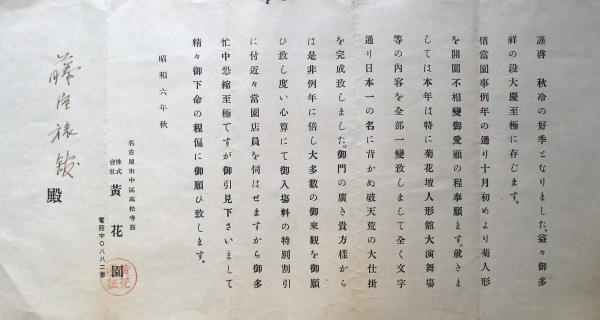 謹啓　秋冷の好季となりました、益々御多
祥の段大慶至極に存じます。
陳當園事例年の通り十月初めより菊人形
を開園不相變御愛顧の程奉願ます。就きま
しては本年は特に菊花壇人形館大演舞塲
等の内容を全部一變致しまして全く文字
通り日本一の名に背かぬ破天荒の大仕掛
を完成致しました。御門の廣き貴方樣から
は是非例年に倍し大多數の御來観を御願
ひ致し度い心算にて御入塲料の特別割引
に付近々當園店員を伺はせますから御多
忙中恐縮至極ですが御引見下さいまして
精々御下命の程偏に御願ひ致します。
昭和六年秋
名古屋市中區高松寺筋
株式會社 黃花園
電話中〇八八二番
旅館
殿